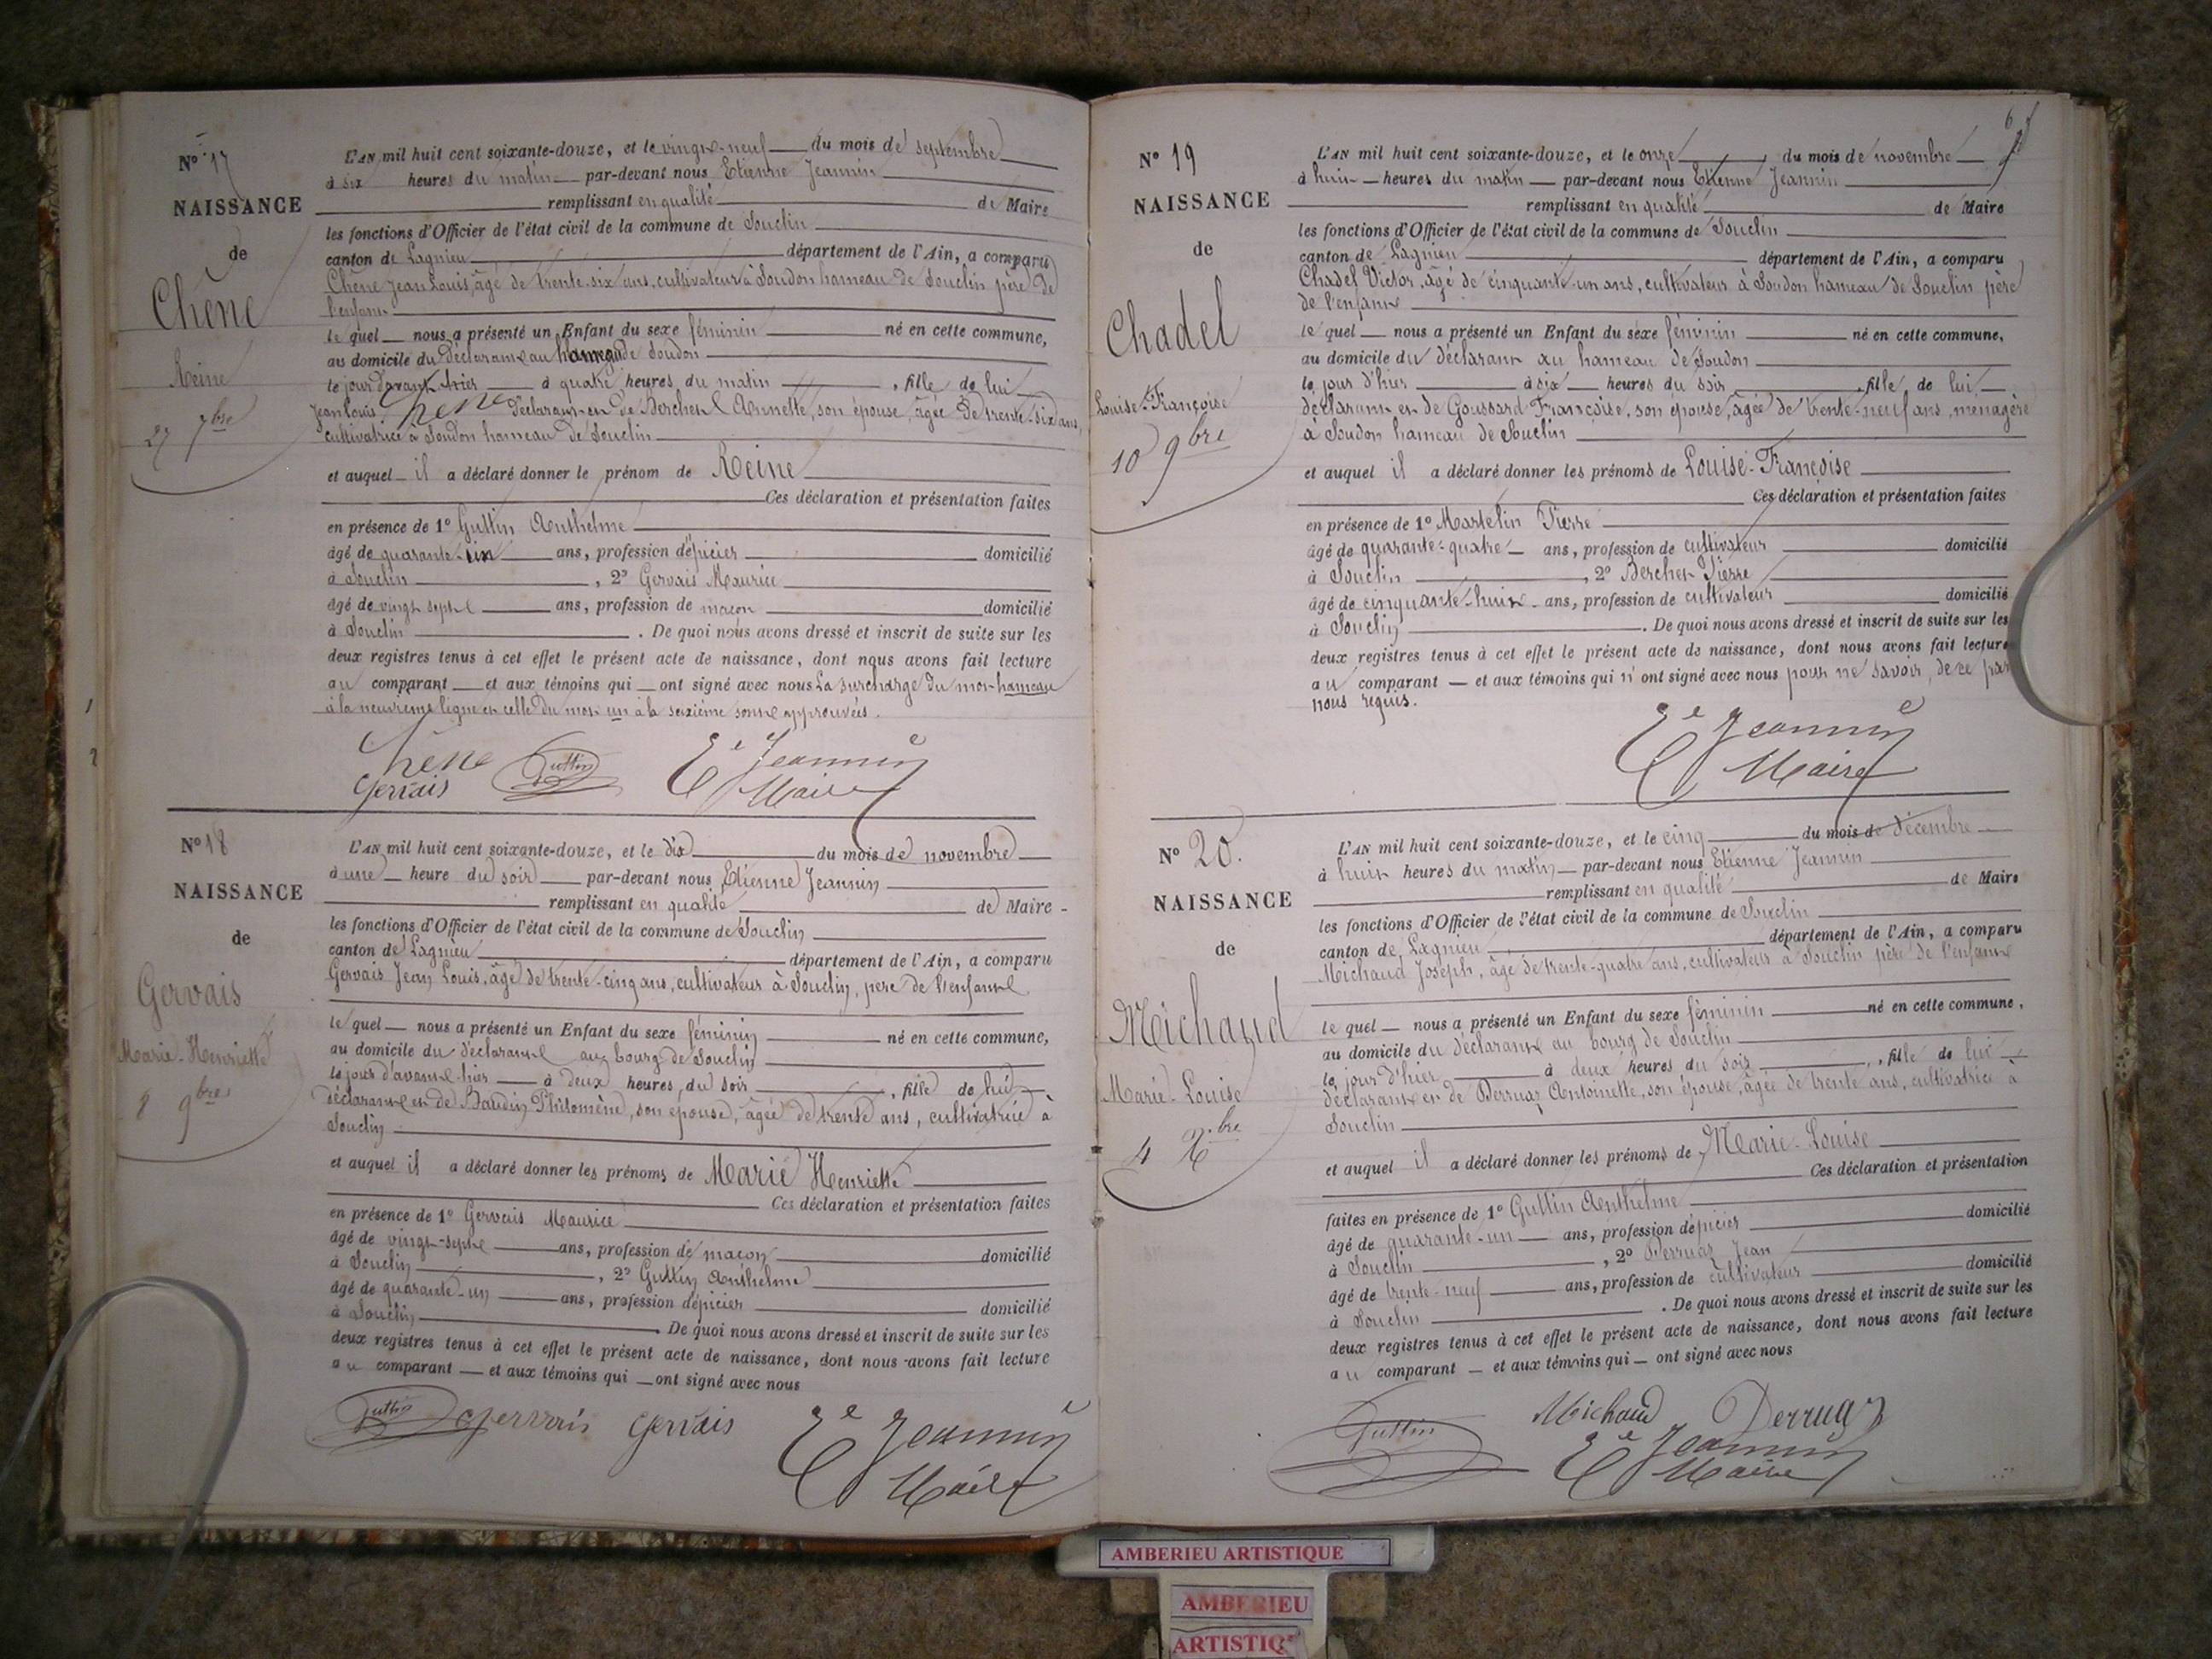 N° 17
NAISSANCE
de
Chêne
Reine
27 7bre
L'AN mil huit cent soixante-douze, et le vingt-neuf du mois de septembre
à six heures du matin par-devant nous Etienne Jeannin
remplissant en qualité de Maire
les fonctions d'Officier de l'état civil de la commune de Souclin
canton de Lagnieu département de l'Ain, a comparu
Chêne Jean Louis, âgé de trente-six ans, cultivateur à Soudon hameau de Souclin père de
l'enfant
le quel nous a présenté un Enfant du sexe féminin né en cette commune,
au domicile du déclarant au hameau de Soudon
le jour d'avant hier à quatre heures du matin, fille de lui
Jean Louis Chene déclarant et de Berchet Annette, son épouse, âgée de trente-six ans,
cultivatrice à Soudon hameau de Souclin
et auquel il a déclaré donner le prénom de Reine
Ces déclaration et présentation faites
en présence de 1° Guttin Anthelme
âgé de quarante-un ans, profession d'épicier domicilié
à Souclin, 2° Gervais Maurice
âgé de vingt sept ans, profession de maçon domicilié
à Souclin. De quoi nous avons dressé et inscrit de suite sur les
deux registres tenus à cet effet le présent acte de naissance, dont nous avons fait lecture
au comparant et aux témoins qui ont signé avec nous La surcharge du mot hameau
à la neuvième ligne et celle du mot un à la seizième sont approuvées.
Chene Guttin Ee Jeannin
Gervais Maire
N° 18
NAISSANCE
de
Gervais
Marie-Henriette
8 9bre
L'AN mil huit cent soixante-douze, et le dix du mois de novembre
à une heure du soir par-devant nous Etienne Jeannin
remplissant en qualité de Maire
les fonctions d'Officier de l'état civil de la commune de Souclin
canton de Lagnieu département de l'Ain, a comparu
Gervais Jean Louis, âgé de trente-cinq ans, cultivateur à Souclin, père de l'enfant
le quel nous a présenté un Enfant du sexe féminin né en cette commune,
au domicile du déclarant au bourg de Souclin
le jour d'avant-hier à deux heures du soir, fille de lui
déclarant et de Baudin Philomène, son épouse, âgée de trente ans, cultivatrice à
Souclin
et auquel il a déclaré donner les prénoms de Marie Henriette
Ces déclaration et présentation faites
en présence de 1° Gervais Maurice
âgé de vingt-sept ans, profession de maçon domicilié
à Souclin, 2° Guttin Anthelme
âgé de quarante-un ans, profession d'épicier domicilié
à Souclin. De quoi nous avons dressé et inscrit de suite sur les
deux registres tenus à cet effet le présent acte de naissance, dont nous avons fait lecture
au comparant et aux témoins qui ont signé avec nous
Guttin gervais Gervais Ee Jeannin
Maire
6
N° 19
NAISSANCE
de
Chadel
Louise-Françoise
10 9bre
L'AN mil huit cent soixante-douze, et le onze du mois de novembre
à huit heures du matin par-devant nous Etienne Jeannin
remplissant en qualité de Maire
les fonctions d'Officier de l'état civil de la commune de Souclin
canton de Lagnieu département de l'Ain, a comparu
Chadel Victor, âgé de cinquante-un ans, cultivateur à Soudon hameau de Souclin père
de l'enfant
le quel nous a présenté un Enfant du sexe féminin né en cette commune,
au domicile du déclarant au hameau de Soudon
le jour d'hier à six heures du soir, fille de lui
déclarant et de Goussard Françoise, son épouse, âgée de trente-neuf ans, ménagère
à Soudon hameau de Souclin
et auquel il a déclaré donner les prénoms de Louise-Françoise
Ces déclaration et présentation faites
en présence de 1° Martelin Pierre
âgé de quarante-quatre ans, profession de cultivateur domicilié
à Souclin, 2° Berchet Pierre
âgé de cinquante-huit ans, profession de cultivateur domicilié
à Souclin. De quoi nous avons dressé et inscrit de suite sur les
deux registres tenus à cet effet le présent acte de naissance, dont nous avons fait lecture
au comparant et aux témoins qui n'ont signé avec nous pour ne savoir, de ce par
nous requis.
Ee Jeannin
Maire
N° 20.
NAISSANCE
de
Michaud
Marie-Louise
4 Xbre
L'AN mil huit cent soixante-douze, et le cinq du mois de décembre
à huit heures du matin par-devant nous Etienne Jeannin
remplissant en qualité de Maire
les fonctions d'Officier de l'état civil de la commune de Souclin
canton de Lagnieu département de l'Ain, a comparu
Michaud Joseph, âgé de trente-quatre ans, cultivateur à Souclin père de l'enfant
le quel nous a présenté un Enfant du sexe féminin né en cette commune,
au domicile du déclarant au bourg de Souclin
le jour d'hier à deux heures du soir, fille de lui
déclarant et de Derruaz Antoinette, son épouse, âgée de trente ans, cultivatrice à
Souclin
et auquel il a déclaré donner les prénoms de Marie-Louise
Ces déclaration et présentation
faites en présence de 1° Guttin Anthelme
âgé de quarante-un ans, profession d'épicier domicilié
à Souclin, 2° Derruaz Jean
âgé de trente-neuf ans, profession de cultivateur domicilié
à Souclin. De quoi nous avons dressé et inscrit de suite sur les
deux registres tenus à cet effet le présent acte de naissance, dont nous avons fait lecture
au comparant et aux témoins qui ont signé avec nous
Guttin Michaud Derruaz
Ee Jeannin
Maire
AMBERIEU ARTISTIQUE
AMBERIEU
ARTISTIQ